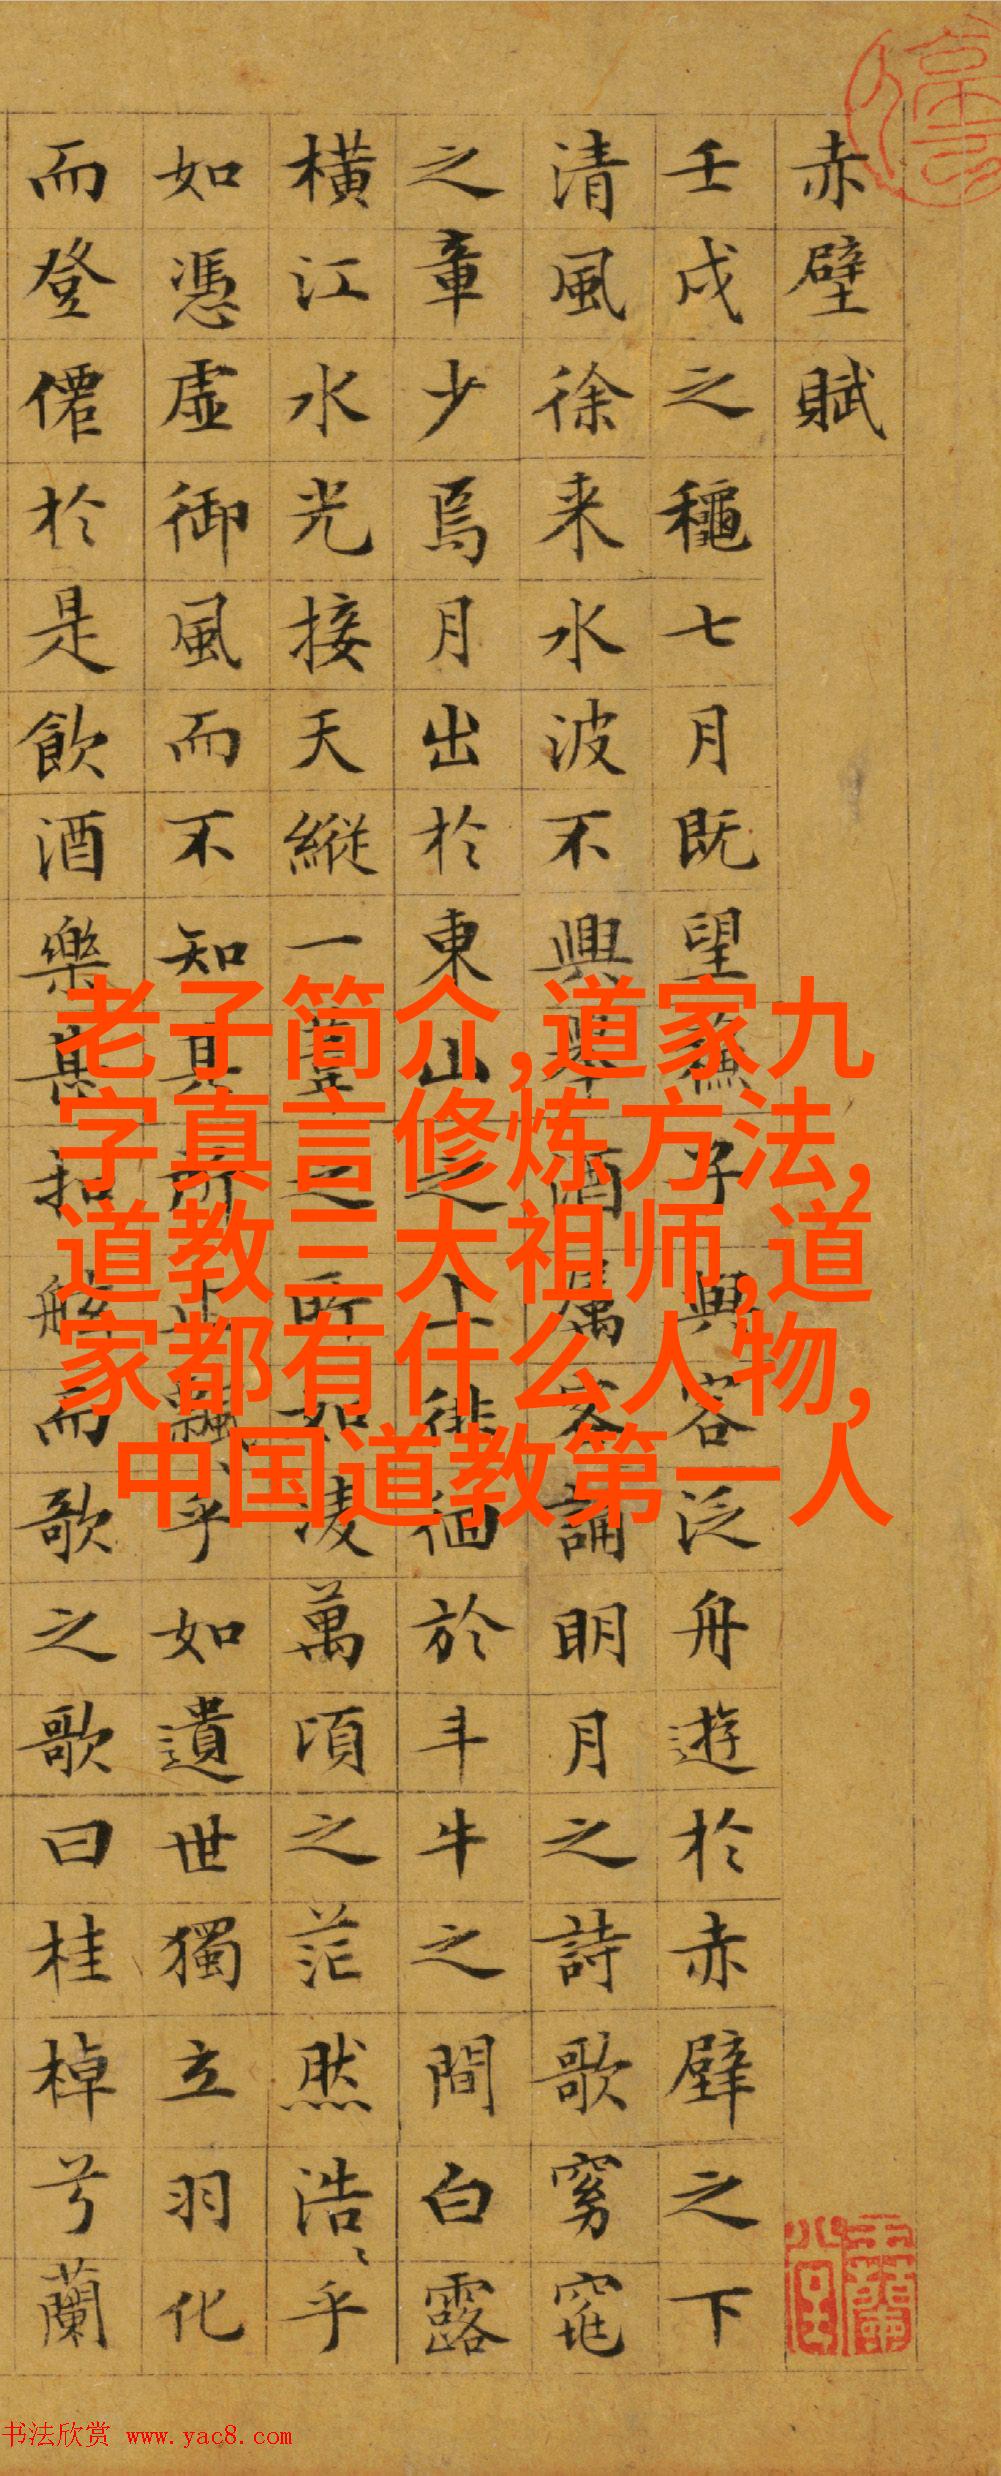 赤壁賦
壬戌之穐七月既望蘇子與客泛舟遊於赤壁之下
清風徐来水波不興舉酒屬客誦明月之詩歌窈窕
之章少焉月出於東山之上徘徊於斗牛之間白露
橫江水光接天縱一葦之所如淩萬頃之茫然浩〻乎
如憑虛御風而不知其所止飄〻乎如遺世獨立羽化
而登僊於是飲酒樂甚扣舷而歌之歌曰桂棹兮蘭
老子简介,道家九
字真言修炼方法,
道教三大祖师,道
家都有什么人物,
中国道教第一人
书法欣赏 www.yac8.com